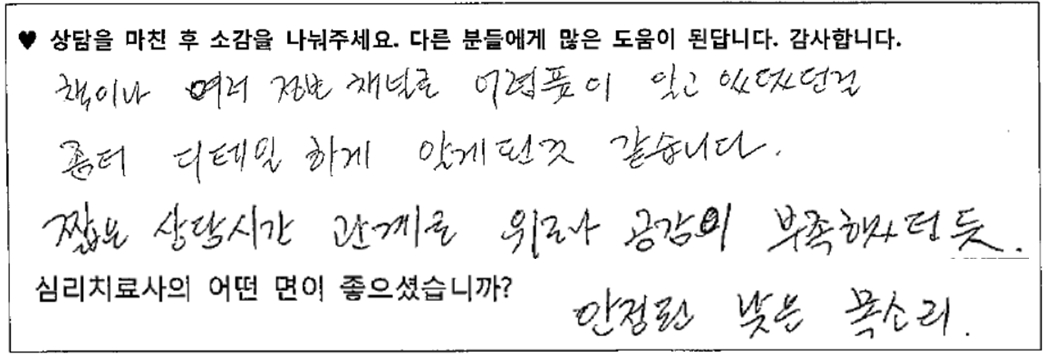 ♥ 상담을 마친 후 소감을 나눠주세요. 다른 분들에게 많은 도움이 된답니다. 감사합니다.
책이나 여러 정보 채널로 어렴풋이 알고 있었던걸
좀더 디테일 하게 알게된것 같습니다.
짧은 상담시간 관계로 위로나 공감의 부족했던 듯.
심리치료사의 어떤 면이 좋으셨습니까?
안정된 낮은 목소리.